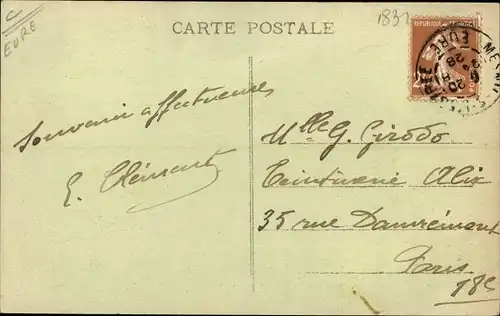 C
EURE
CARTE POSTALE
183
REPUBLIQUE
EURE
28
Souvenir affectueux
E. Clément
Mlle G. Girodo
Teinturerie Alix
35 rue Damrémont
Paris
18e